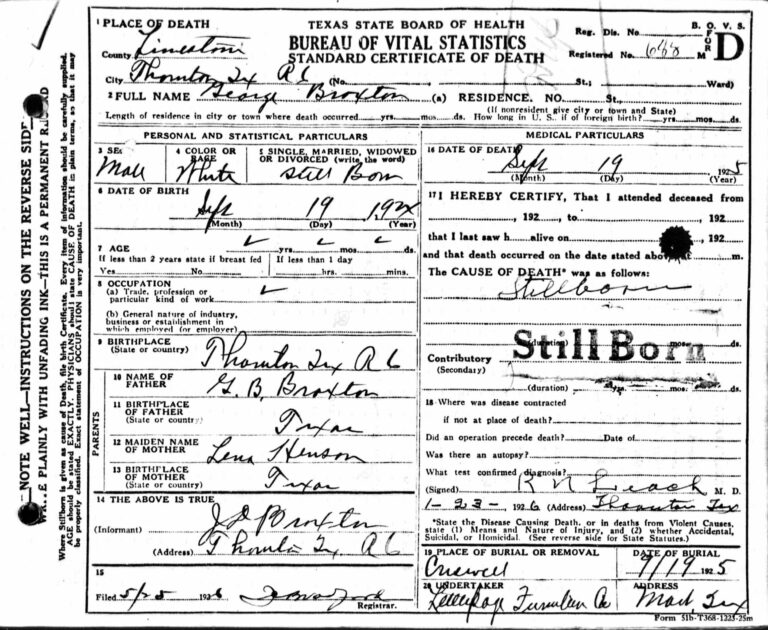 1 PLACE OF DEATH
TEXAS STATE BOARD OF HEALTH
BUREAU OF VITAL STATISTICS
STANDARD CERTIFICATE OF DEATH
B. O. V. S.
FORM D
Reg. Dis. No.
Registered No. 688
County Limestone
City Thornton Tex R 6 (No. St.; Ward)
2 FULL NAME George Broxton (a) RESIDENCE. NO. St.,
(If nonresident give city or town and State)
Length of residence in city or town where death occurred yrs. mos. ds. How long in U. S., if of foreign birth? yrs. mos. ds.
PERSONAL AND STATISTICAL PARTICULARS
3 SEX
Male
4 COLOR OR RACE
White
5 SINGLE, MARRIED, WIDOWED
OR DIVORCED (write the word)
Still Born
6 DATE OF BIRTH
Sept 19 192
(Month) (Day) (Year)
7 AGE yrs. mos. ds.
If less than 2 years state if breast fed
Yes No
If less than 1 day
hrs. mins.
8 OCCUPATION
(a) Trade, profession or
particular kind of work
(b) General nature of industry,
business or establishment in
which employed (or employer)
9 BIRTHPLACE
(State or country) Thornton Tex R 6
PARENTS
10 NAME OF
FATHER G. B. Broxton
11 BIRTHPLACE
OF FATHER
(State or country) Texas
12 MAIDEN NAME
OF MOTHER Lena Henson
13 BIRTHPLACE
OF MOTHER
(State or country) Texas
14 THE ABOVE IS TRUE
(Informant) Broxton
(Address) Thornton Tex R 6
15
Filed 5/25 1926
Registrar.
MEDICAL PARTICULARS
16 DATE OF DEATH
Sept 19 1925
(Month) (Day) (Year)
17 I HEREBY CERTIFY, That I attended deceased from
, 192 , to , 192
that I last saw h alive on , 192
and that death occurred on the date stated above, at m.
The CAUSE OF DEATH* was as follows:
Stillborn
(duration) yrs. mos. ds.
Still Born
Contributory
(Secondary)
(duration) yrs. mos. ds.
18 Where was disease contracted
if not at place of death?
Did an operation precede death? Date of
Was there an autopsy?
What test confirmed diagnosis?
(Signed) R N Leach M. D.
1-23- 1926 (Address) Thornton Tex
*State the Disease Causing Death, or in deaths from Violent Causes,
state (1) Means and Nature of Injury, and (2) whether Accidental,
Suicidal, or Homicidal. (See reverse side for State Statutes.)
19 PLACE OF BURIAL OR REMOVAL
Criswell
DATE OF BURIAL
9/19 1925
20 UNDERTAKER
Co
ADDRESS
Mart, Tex
Form 51b-T368-1225-25m
NOTE WELL—INSTRUCTIONS ON THE REVERSE SIDE
PLAINLY WITH UNFADING INK—THIS IS A PERMANENT
Every item of information should be carefully supplied.
AGE should be stated EXACTLY. PHYSICIANS should state CAUSE OF DEATH in plain terms, so that it may
be properly classified. Exact statement of OCCUPATION is very important.
Where Stillborn is given as cause of Death, file birth Certificate.